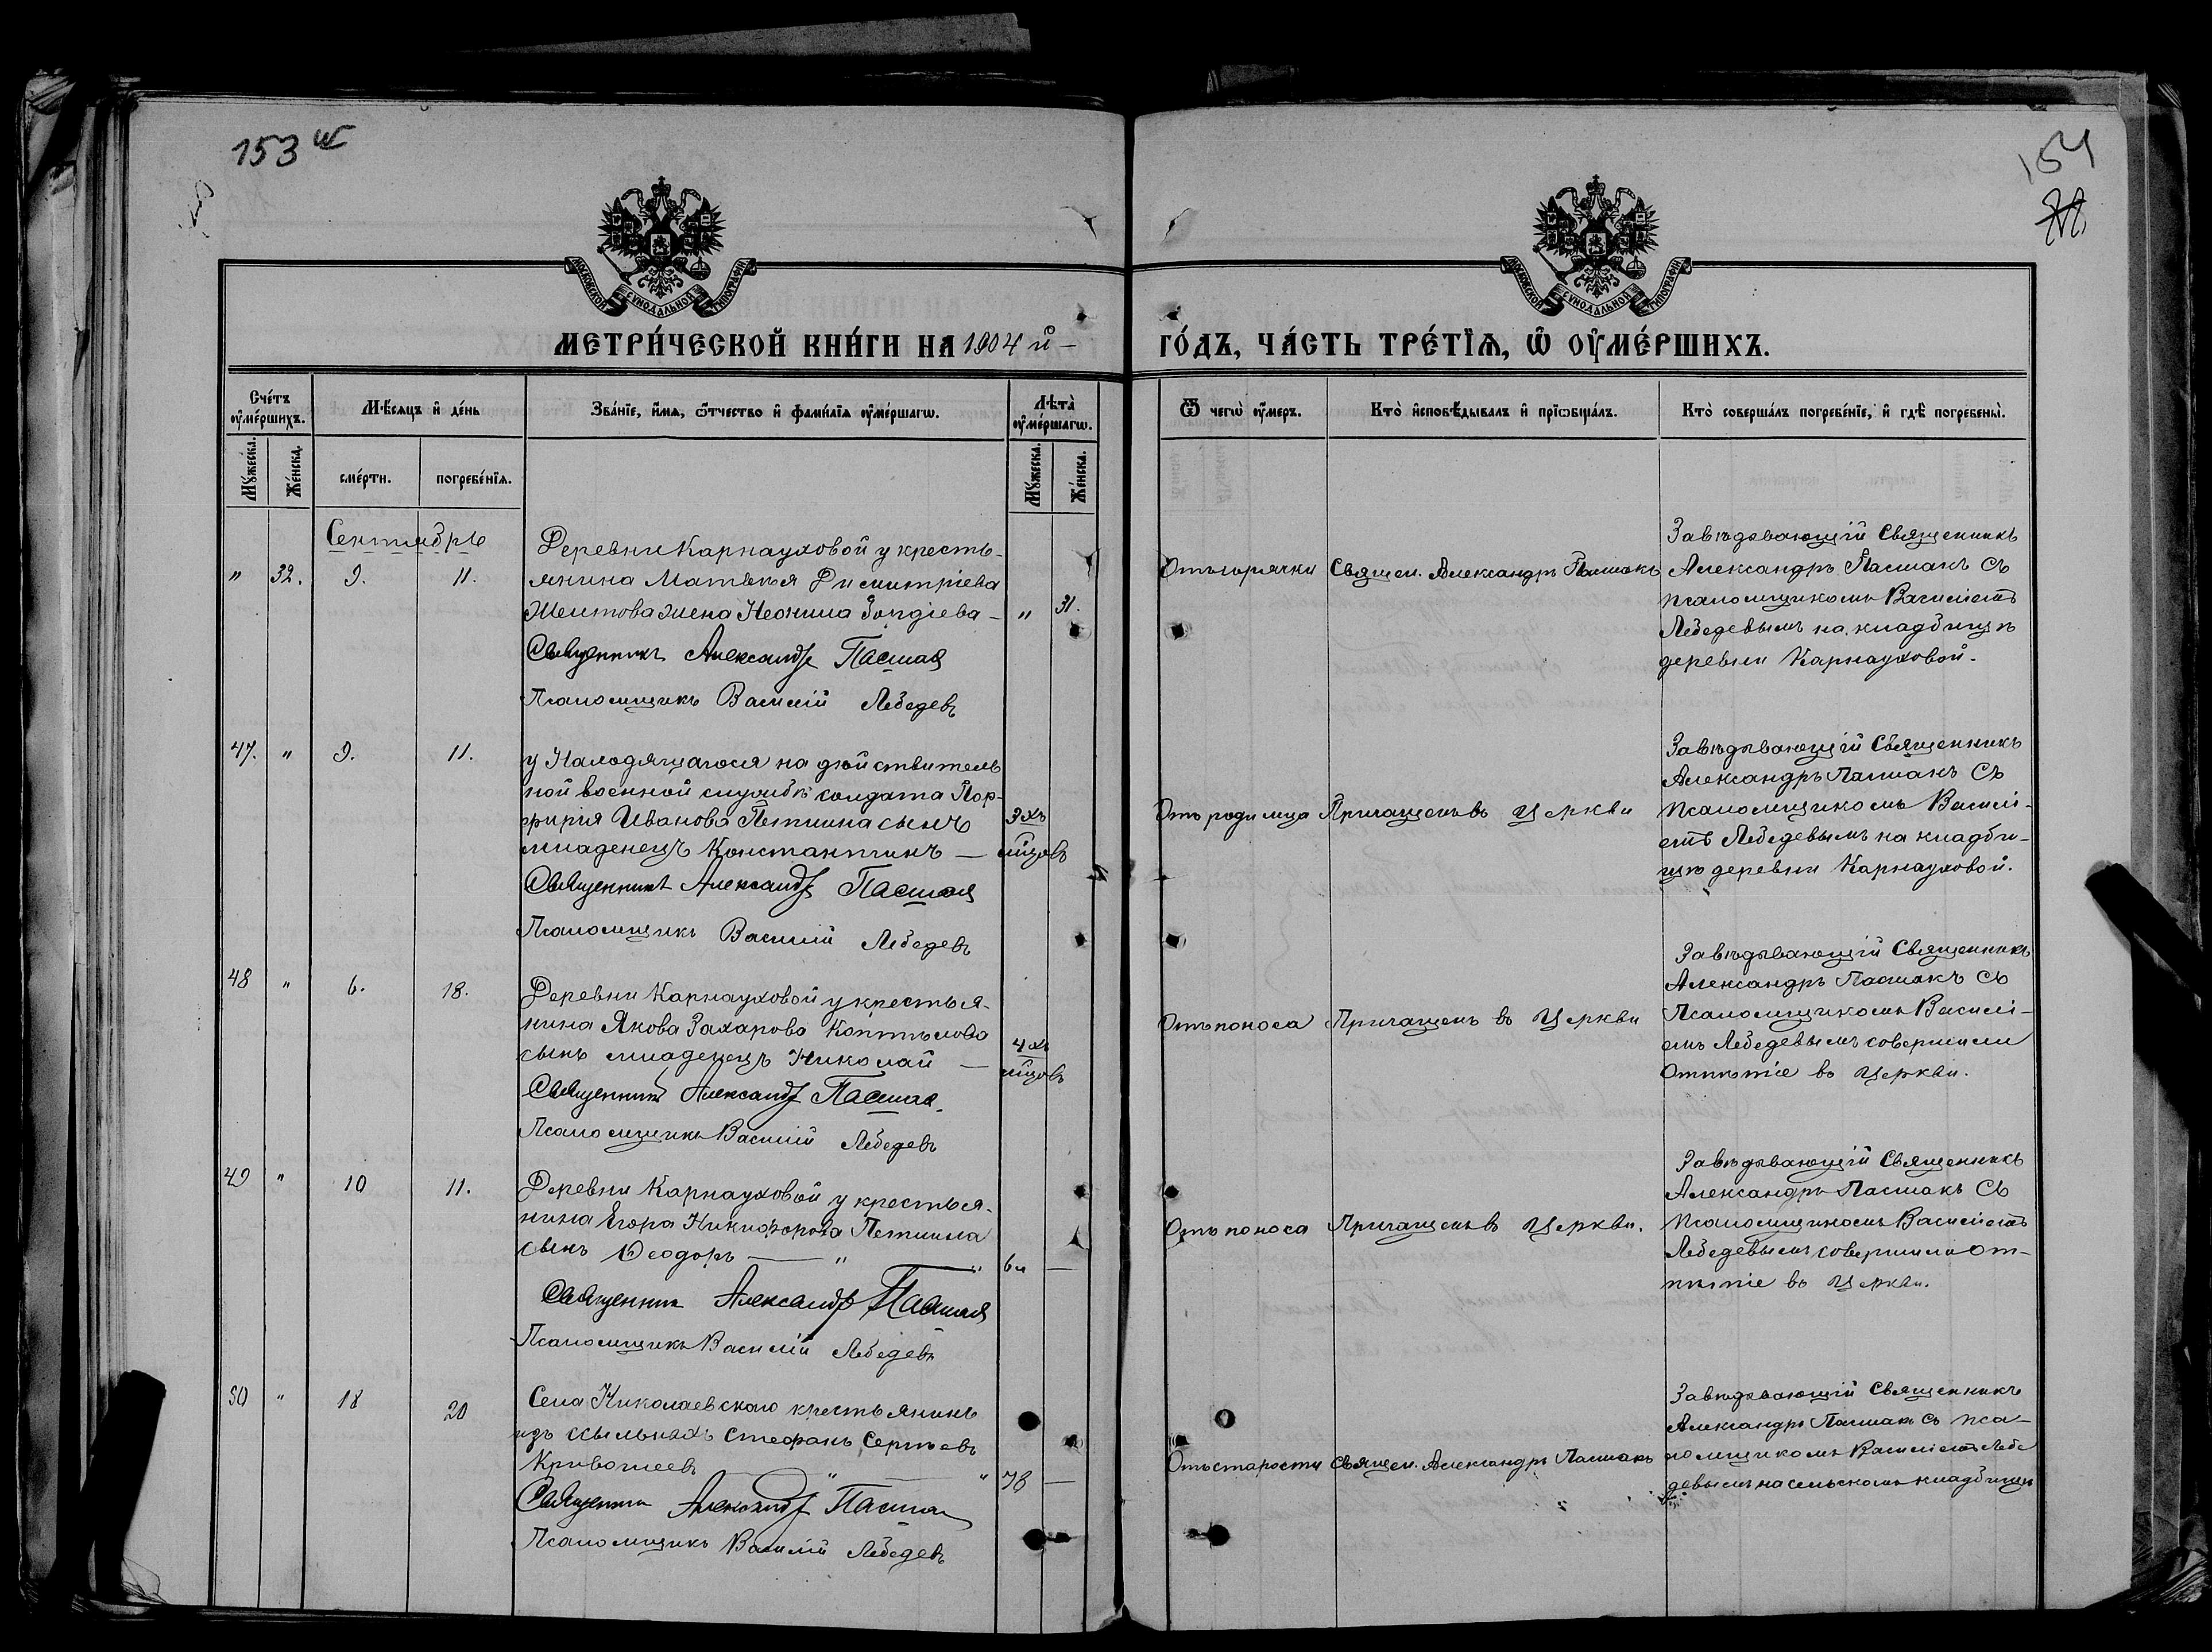 153 об
154
МОСКОВСКОЙ СУНОДАЛЬНОЙ ТИПОГРАФІИ
МОСКОВСКОЙ СУНОДАЛЬНОЙ ТИПОГРАФІИ
МЕТРИ́ЧЕСКОЙ КНИ́ГИ НА 1904 й
ГО́ДЪ, ЧА́СТЬ ТРЕ́ТІѦ, Ѡ҆ ОУ҆МЕ́РШИХЪ.
Сче́тъ оу҆ме́ршихъ.
Мꙋ́жеска.
Же́нска.
Мѣ́сѧцъ и҆ де́нь
сме́рти.
погребе́нїѧ.
Зва́нїе, и҆́мѧ, ѻ҆́тчество и҆ фами́лїѧ оу҆ме́ршагѡ.
Лѣта̀ оу҆ме́ршагѡ.
Мꙋ́жеска.
Же́нска.
Ѿ чегѡ̀ оу҆́меръ.
Кто̀ и҆сповѣ́дывалъ и҆ прїѡбща́лъ.
Кто̀ соверша́лъ погребе́нїе, и҆ гдѣ̀ погребены̀.
Сентябрь
" 32. 9. 11.
Деревни Карнауховой у кресть-
янина Матѳея Димитріева
Желтова жена Неонила
" 31.
Священникъ Александръ Пасмак
Псаломщикъ Василій Лебедевъ
Отъ горячки
Священ. Александръ Пасмакъ
Завѣдывающій Священникъ
Александръ Пасмакъ съ
псаломщикомъ Василіемъ
Лебедевымъ на кладбищѣ
деревни Карнауховой.
47. " 9. 11.
у Находящагося на дѣйствитель
ной военной службѣ солдата Пор-
фирія Иванова Летнина сынъ
младенецъ Константинъ —
3 хъ
мѣцовъ
Священникъ Александръ Пасмак
Псаломщикъ Василій Лебедевъ
Отъ родимца
Причащенъ въ Церкви
Завѣдывающій Священникъ
Александръ Пасмакъ Съ
Псаломщикомъ Василі-
емъ Лебедевымъ на кладби-
щѣ деревни Карнауховой.
48 " 6. 18.
Деревни Карнауховой у крестья-
нина Якова Захарова
сынъ младенецъ Николай —
4 хъ
мѣцовъ
Священникъ Александръ Пасмак
Псаломщикъ Василій Лебедевъ
Отъ поноса
Причащенъ въ Церкви
Завѣдывающій Священникъ
Александръ Пасмакъ Съ
Псаломщикомъ Василі-
емъ Лебедевымъ совершили
Отпѣтіе въ Церкви.
49 " 10 11.
Деревни Карнауховой у крестья-
нина Егора Никифорова Летнина
сынъ Ѳеодоръ — " — "
6 л —
Священник Александръ Пасмак
Псаломщикъ Василій Лебедевъ
Отъ поноса
Причащенъ въ Церкви.
Завѣдывающій Священникъ
Александръ Пасмакъ Съ
Псаломщикомъ Василіемъ
Лебедевымъ совершили От-
пѣтіе въ Церкви.
50 " 18 20
Села Николаевского крестьянинъ
изъ ссыльныхъ Стефанъ Сергѣевъ
Кривошеевъ — " — "
78 —
Священник Александръ Пасмак
Псаломщикъ Василій Лебедевъ
Отъ старости
Священ. Александръ Пасмакъ
Завѣдывающій Священникъ
Александръ Пасмакъ Съ пса-
ломщикомъ Василіемъ Лебе
девымъ на сельскомъ кладбищѣ